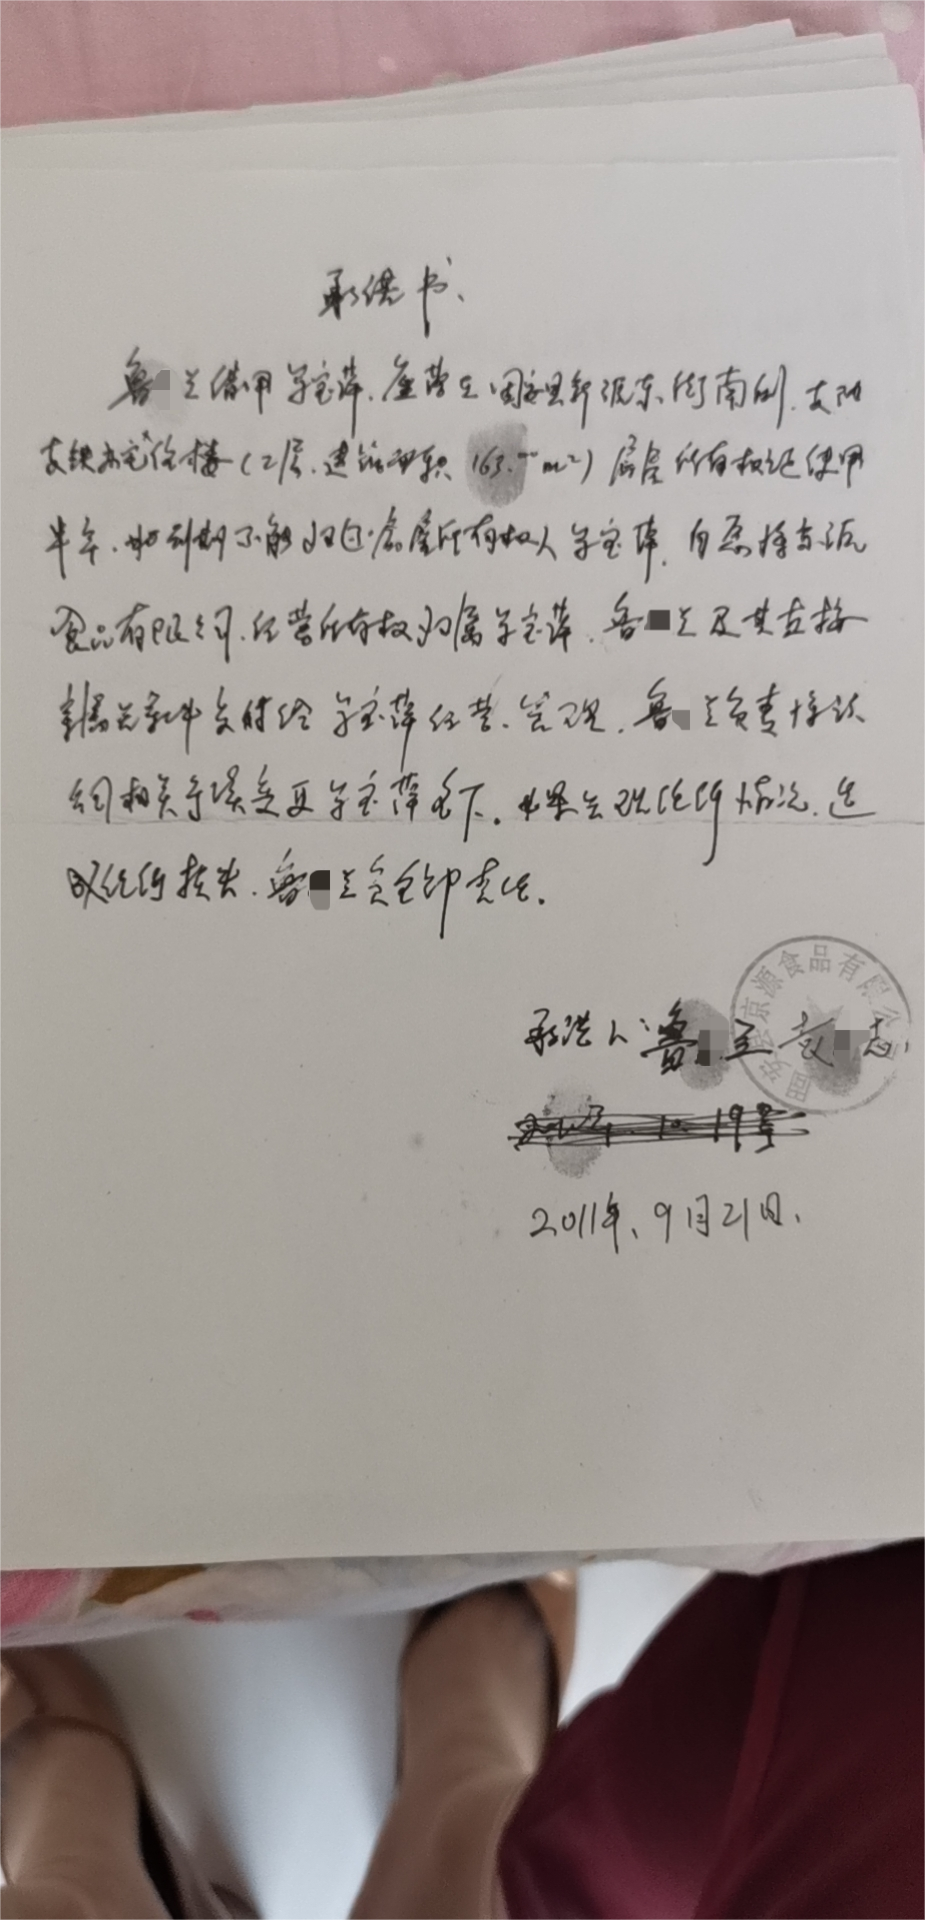 承诺书、
鲁 兰借用 宝萍、座落在固安县新源东街南侧、
住宅楼(2层、建筑面积163. m²)房屋所有权证使用
半年、如到期不能归还房屋所有权人 宝萍、自愿将京源
食品有限公司、经营所有权归属 宝萍、鲁 兰及其直接
亲属无条件交付给 宝萍经营、管理、鲁 兰负责将该
公司相关手续变更 宝萍名下。如果出现任何情况、造
成任何损失、鲁 兰负全部责任。
承诺人:鲁 兰 志
固安县京源食品有限公司
10.19号
2011年、9月21日、